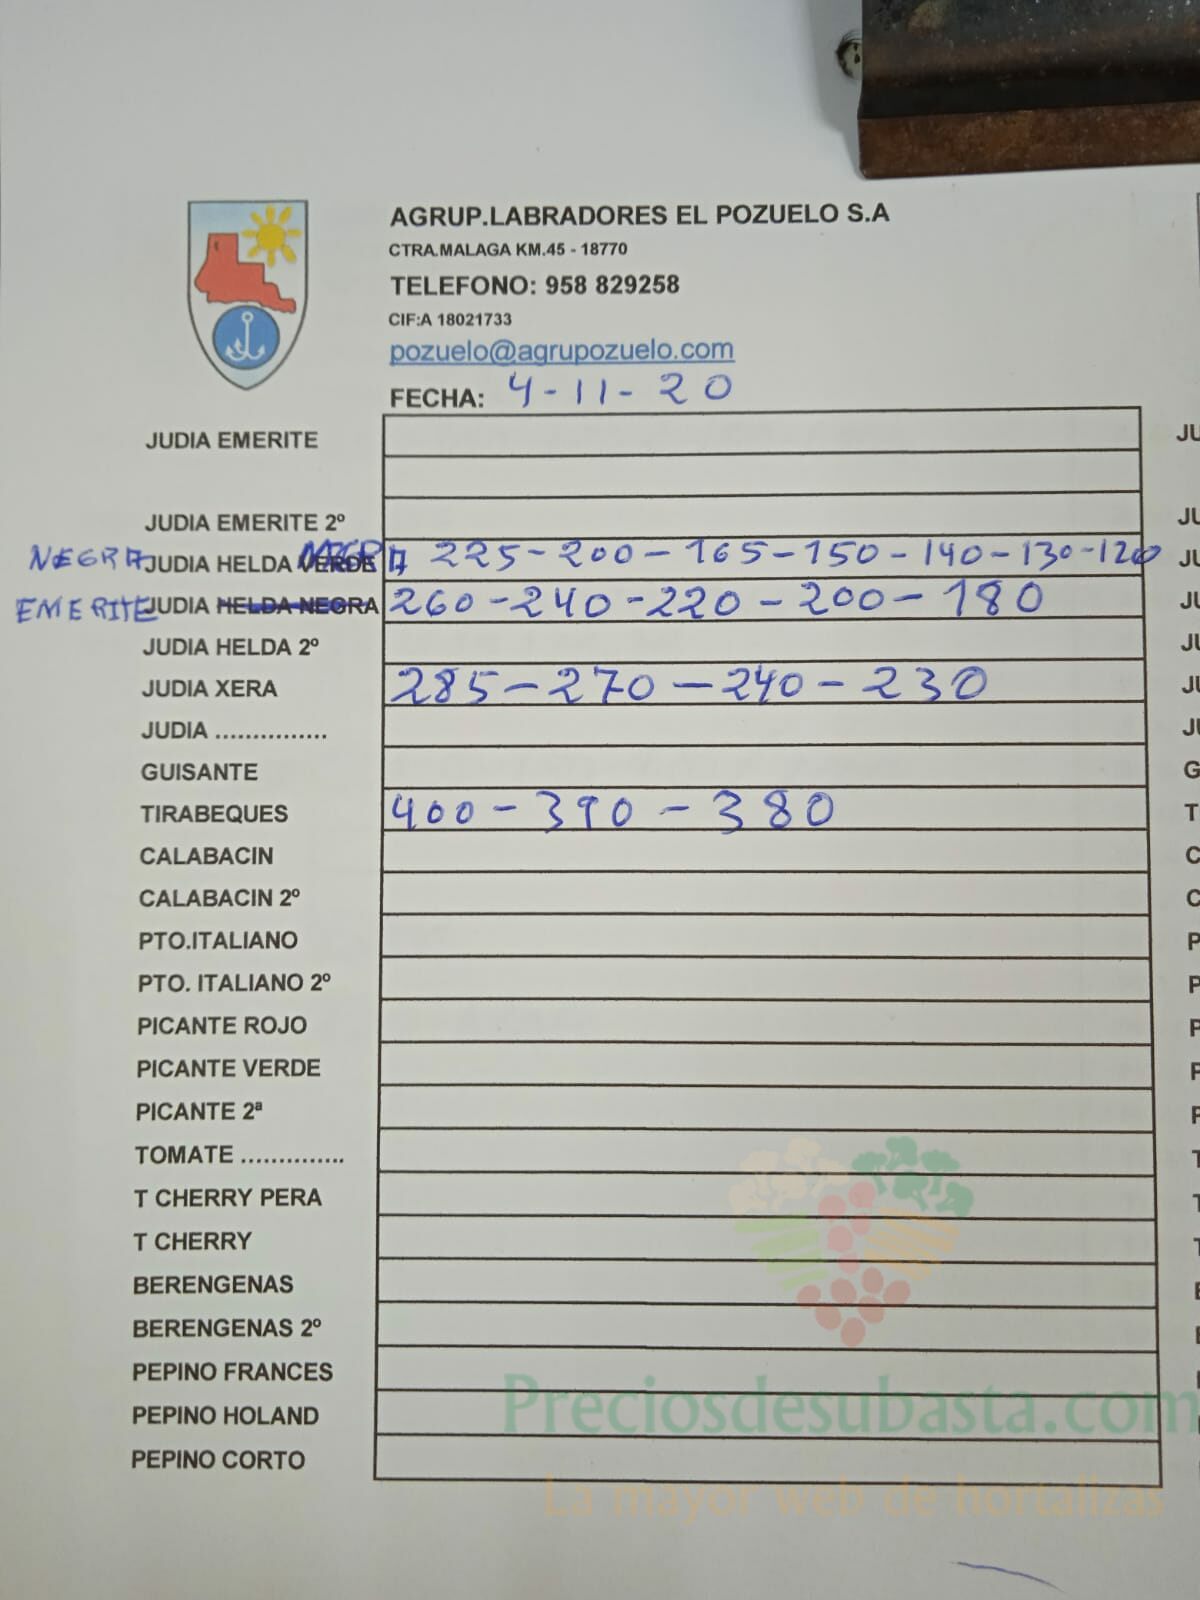 AGRUP.LABRADORES EL POZUELO S.A
CTRA.MALAGA KM.45 - 18770
TELEFONO: 958 829258
CIF:A 18021733
pozuelo@agrupozuelo.com
FECHA: 4-11-20
JUDIA EMERITE
JUDIA EMERITE 2º
NEGRA JUDIA HELDA VERDE NEGRA 225-200-165-150-140-130-120
EMERITE JUDIA HELDA NEGRA 260-240-220-200-180
JUDIA HELDA 2º
JUDIA XERA 285-270-240-230
JUDIA ...............
GUISANTE
TIRABEQUES 400-390-380
CALABACIN
CALABACIN 2º
PTO.ITALIANO
PTO. ITALIANO 2º
PICANTE ROJO
PICANTE VERDE
PICANTE 2ª
TOMATE ..............
T CHERRY PERA
T CHERRY
BERENGENAS
BERENGENAS 2º
PEPINO FRANCES
PEPINO HOLAND
PEPINO CORTO
Preciosdesubasta.com
La mayor web de hortalizas